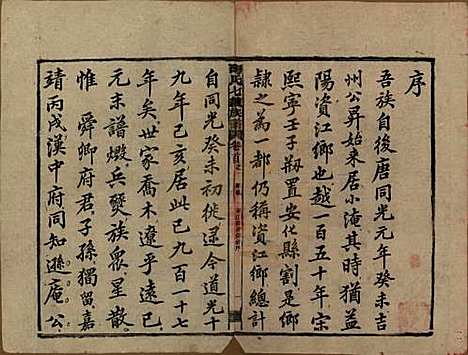 序
吾族自後唐同光元年癸未吉
州公昇始来居小淹其時猶益
陽資江鄉也越一百五十年宋
熙寧壬子剏置安化縣割是鄉
隸之為一都仍稱資江鄉總計
自同光癸未初徙逮今道光十
九年己亥居此已九百一十七
年矣世家喬木遼乎遠已
元末譜燬兵燹族眾星散
惟舜卿府君子孫獨留嘉
靖丙戌漢中府同知遜庵公